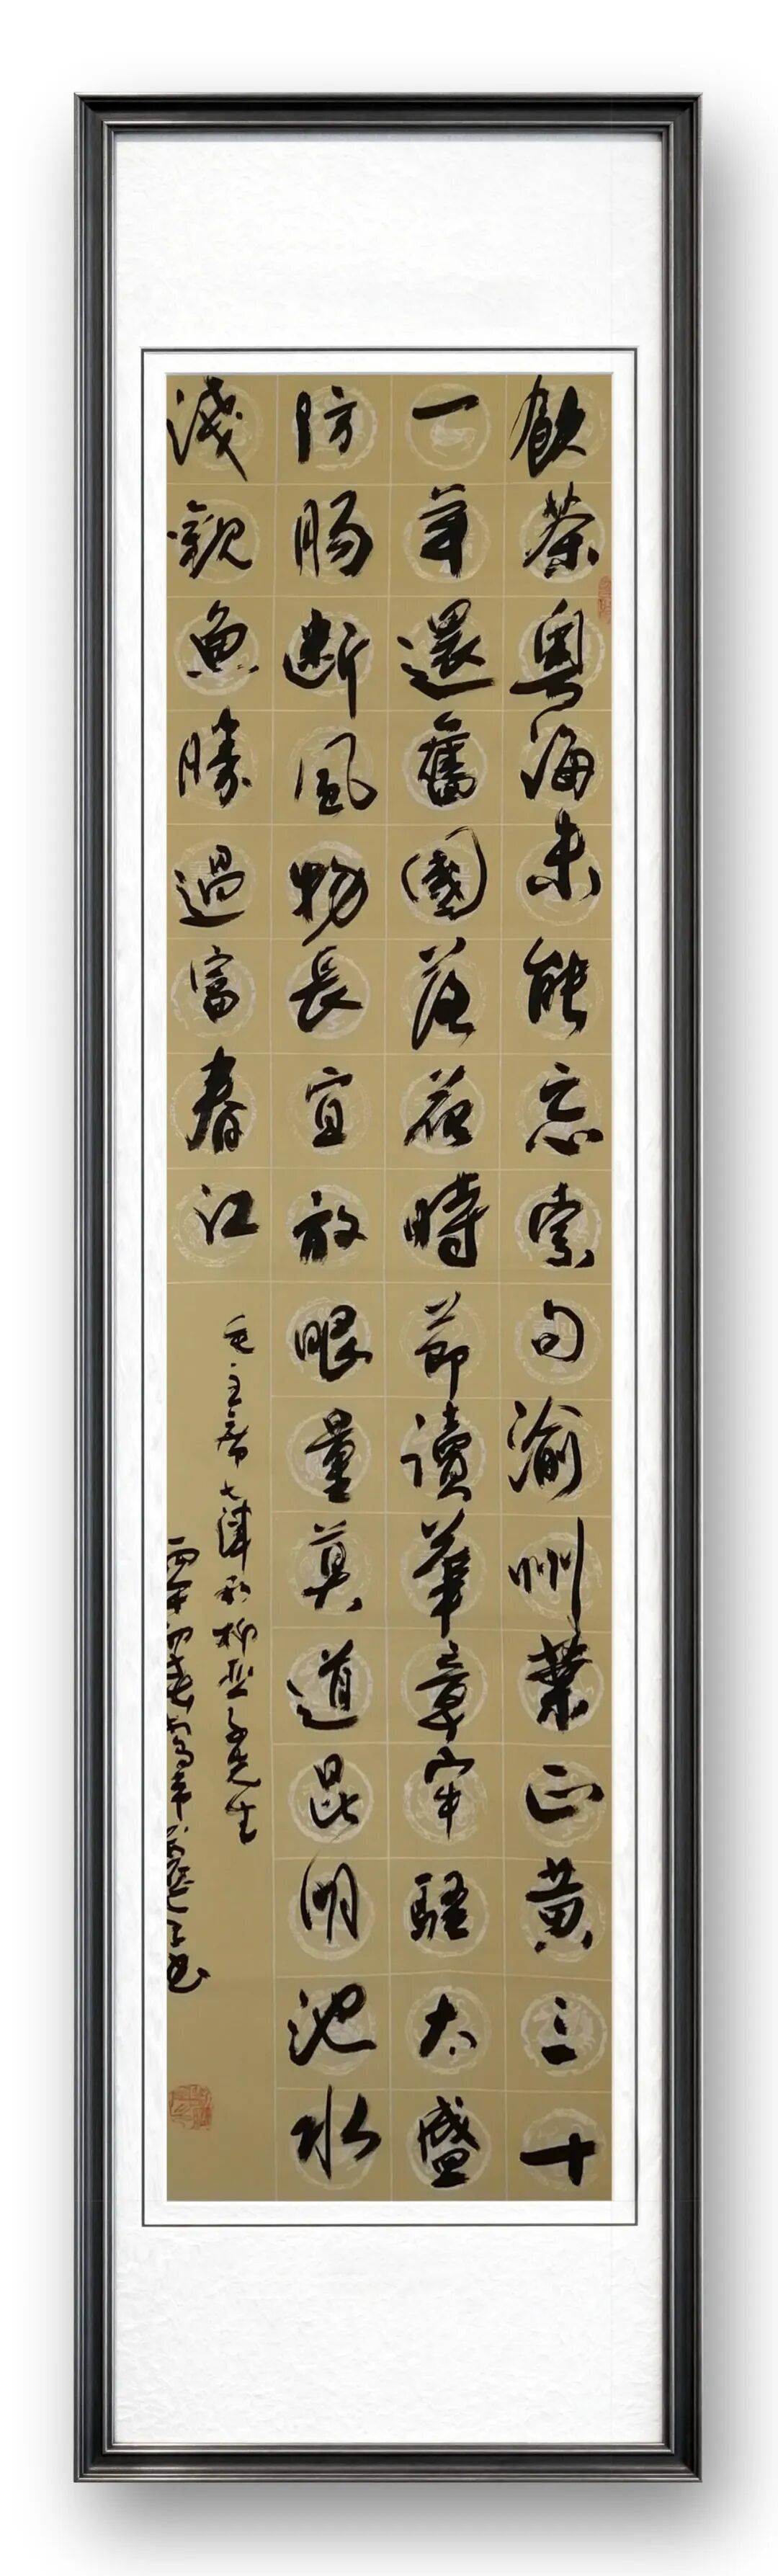 飲茶粵海未能忘索句渝州葉正黄三十
一年還舊國落花時節讀華章牢騷太盛
防腸断風物長宜放眼量莫道昆明池水
淺觀魚勝過富春江
毛主席七律和柳亞子先生
丙午初春